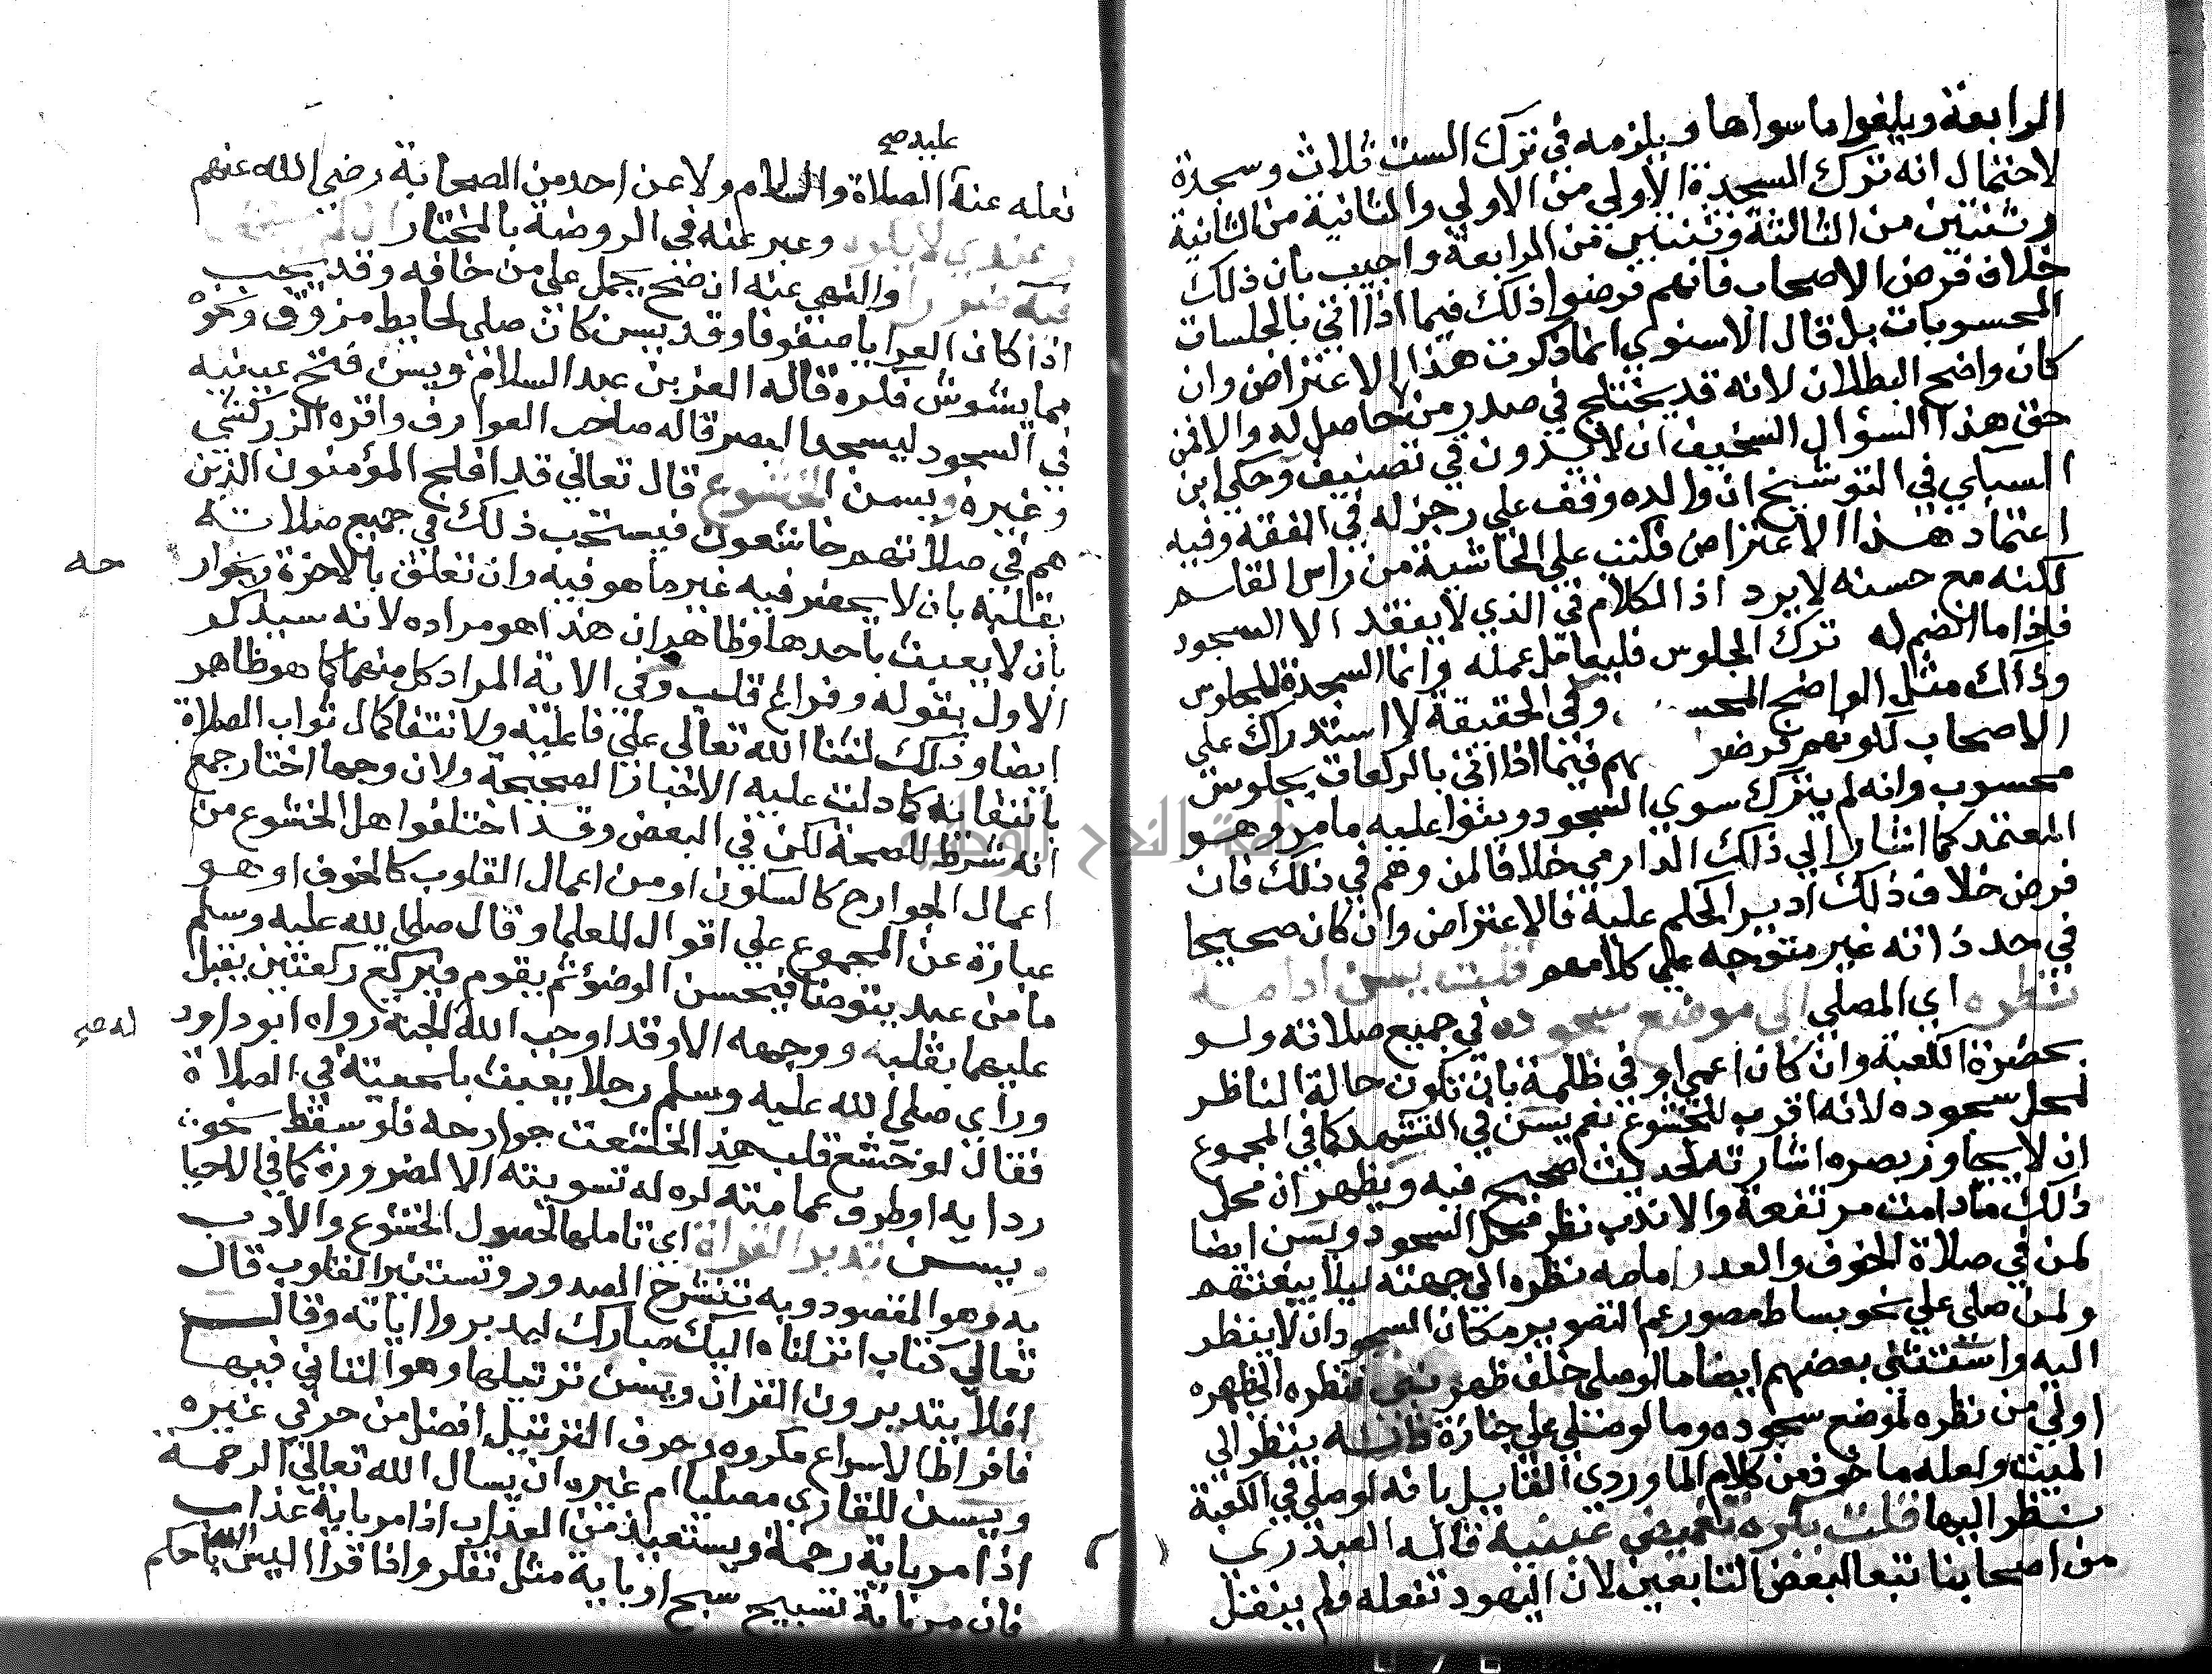 الرابعة ويلغوا ما سواها ويلزمه في ترك الست ثلاث وسجدة
لاحتمال انه ترك السجدة الاولي من الاولي والثانية من الثانية
وثنتين من الثالثة وثنتين من الرابعة واجيب بان ذلك
خلاف فرض الاصحاب فانهم فرضوا ذلك فيما اذا اتي بالجلسات
المحسوبات بل قال الاسنوي انما ذكرت هذا الاعتراض وان
كان واضح البطلان لانه قد يختلج في صدر من لا حاصل له والا فمن
حق هذا السؤال السخيف ان لا يدون في تصنيف وحكي ابن
السبكي في التوشيح ان والده وقف علي رجز له في الفقه وفيه
اعتماد هذا الاعتراض فكتب علي الحاشية من راس القاسم
لكنه مع حسنه لا يرد اذ الكلام في الذي لا يفقد الا السجود
فاذا ما انضم له ترك الجلوس فليعامل عمله وانما السجدة للجلوس
وذاك مثل الواضح المحسـ وفي الحقيقة لا استدراك علي
الاصحاب لكونهم فرضوا هم فيما اذا اتي بالركعات بجلوس
محسوب وانه لم يترك سوي السجود وبنوا عليه ما مر وهو
المعتمد كما اشار الي ذلك الدارمي خلافا لمن وهم في ذلك فان
فرض خلاف ذلك ادير الحكم عليه فالاعتراض وان كان صحيحا
في حد ذاته غير متوجه علي كلامهم قلت يسن ادامة
نظره اي المصلي الي موضع سجوده في جميع صلاته ولو
بحضرة الكعبة وان كان اعمي او في ظلمة بان تكون حالة الناظر
لمحل سجوده لانه اقرب للخشوع نعم يسن في التشهد كما في المجموع
ان لا يجاوز بصره اشارته لحديث صحيح فيه ويظهر ان محل
ذلك ما دامت مرتفعة والا ندب نظر محل السجود ويسن ايضا
لمن في صلاة الخوف والعدو امامه نظره الي جهته ليلا يبغتهم
ولمن صلي علي نحو بساط مصور عم التصوير مكان السجود ان لا ينظر
اليه واستثني بعضهم ايضا ما لو صلي خلف ظهر نبي فنظره الي ظهره
اولي من نظره لموضع سجوده وما لو صلي علي جنازة فانه ينظر الي
الميت ولعله ماخوذ من كلام الماوردي القايل بانه لو صلي في الكعبة
ينظر اليها قلت يكره تغميض عينيه قاله العبدري
من اصحابنا تبعا لبعض التابعين لان اليهود تفعله ولم ينقل
عليه صح
فعله عنه الصلاة والسلام ولا عن احد من الصحابة رضي الله عنهم
وعندي لا يكره وعبر عنه في الروضة بالمختار ان لم يخف
منه ضررا والنهي عنه ان صح يحمل علي من خافه وقد يجب
اذا كان العرايا صفوفا وقد يسن كان صلي لحايط مزوق ونحوه
مما يشوش فكره قاله العز بن عبد السلام ويسن فتح عينيه
في السجود ليسجدا البصر قاله صاحب العوارف واقره الزركشي
وغيره ويسن الخشوع قال تعالي قد افلح المؤمنون الذين
هم في صلاتهم خاشعون فيستحب ذلك في جميع صلاته
حه
بقلبه بان لا يحضر فيه غير ما هو فيه وان تعلق بالاخرة وبجوار
بان لا يعبث باحدها وظاهر ان هذا هو مراده لانه سيذكر
الاول بقوله وفراغ قلب وفي الاية المراد كل منهما كما هو ظاهر
ايضا وذلك لثنا الله تعالي علي فاعليه ولانتفا كمال ثواب الصلاة
بانتفايه كما دلت عليه الاخبار الصحيحة ولان وجها اختار جمع
انه شرط للصحة لكن في البعض وقد اختلفوا هل الخشوع من
اعمال الجوارح كالسكون او من اعمال القلوب كالخوف او هو
عبارة عن المجموع علي اقوال للعلما وقال صلي الله عليه وسلم
ما من عبد يتوضا فيحسن الوضؤ ثم يقوم فيركع ركعتين يقبل
عليهما بقلبه ووجهه الا وقد اوجب الله الجنة رواه ابو داود
له صح
وراي صلي الله عليه وسلم رجلا يعبث بلحيته في الصلاة
فقال لو خشع قلب هذا لخشعت جوارحه فلو سقط نحو
ردايه او طرف عمامته كره له تسويته الا لضرورة كما في الاحيا
ويسن تدبر القراة اي تاملها لحصول الخشوع والادب
به وهو المقصود وبه تنشرح الصدور وتستنير القلوب قال
تعالي كتاب انزلناه اليك مبارك ليدبروا اياته وقال
افلا يتدبرون القران ويسن ترتيلها وهو التاني فيها
فافراط الاسراع مكروه وحرف الترتيل افضل من حرفي غيره
ويسن للقاري مصليا ام غيره ان يسال الله تعالي الرحمة
اذا مر باية رحمة ويستعيذ من العذاب اذا مر باية عذاب
فان مر باية تسبيح سبح او باية مثل تفكر واذا قرا اليس الله باحكم